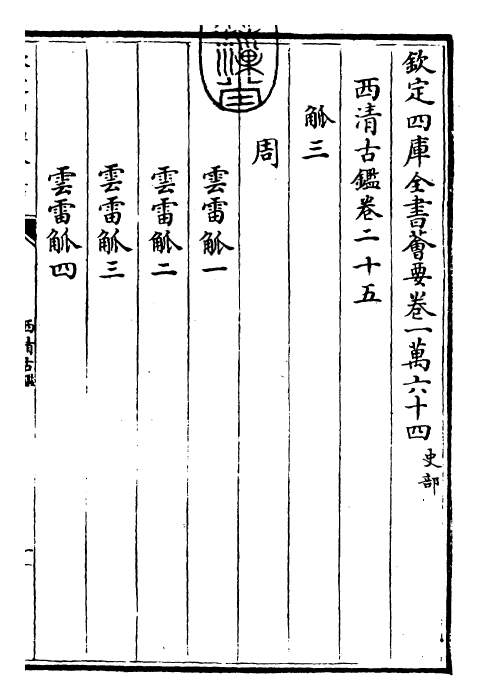 欽定四庫全書薈要卷一萬六十四 史部
西清古鑑卷二十五
觚三
周
雲雷觚一
雲雷觚二
雲雷觚三
雲雷觚四
西清古鑑